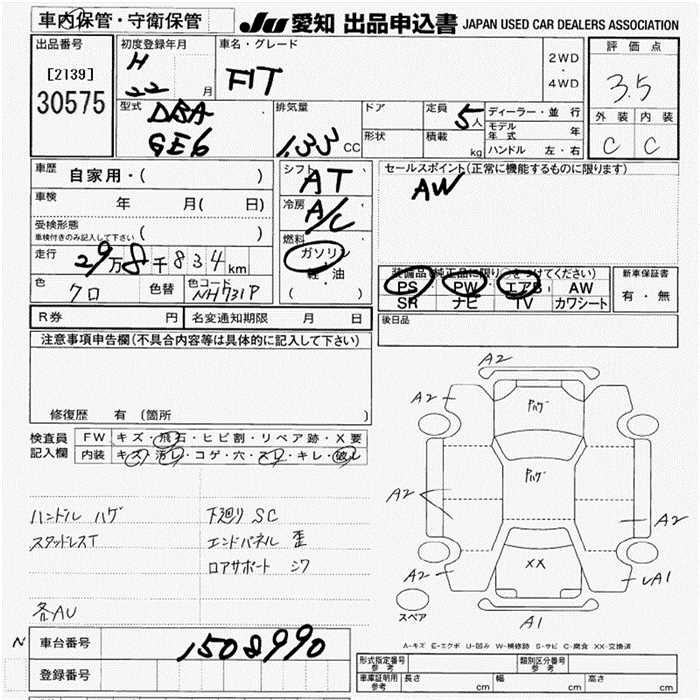 車内保管・守衛保管
JU 愛知 出品申込書 JAPAN USED CAR DEALERS ASSOCIATION
出品番号
[2139]
30575
初度登録年月
H
22 月
車名・グレード
FIT
2WD
・
4WD
評価点
3.5
外装 内装
C C
型式
DBA
GE6
排気量
1.33 CC
ドア
形状
定員
5人
積載 kg
ディーラー・並行
モデル年式 年
ハンドル 左・右
車歴
自家用・( )
車検
年 月( 日)
受検形態
車検付きのみ記入して下さい ( )
走行
29万8千834km
色
クロ
色替
色コード
NH731P
シフト
AT
冷房
A/C
燃料
ガソリン
軽・油
( )
セールスポイント(正常に機能するものに限ります)
AW
装備品(純正品に限り○をつけてください)
PS PW エアB AW
SR ナビ TV カワシート
新車保証書
有・無
R券 円
名変通知期限 月 日
後日品
注意事項申告欄(不具合内容等は具体的に記入して下さい)
修復歴 有(箇所 )
検査員
記入欄
FW キズ・飛石・ヒビ割・リペア跡・X要
内装 キズ・汚レ・コゲ・穴・スレ・キレ・破レ
ハンドル ハゲ
スタッドレスT
各AU
下廻り SC
エンドパネル 歪
ロアサポート シワ
A2
A2
Pハゲ
A2
Pハゲ
A2
A2
A2
XX
A2
A1
スペア
A1
A-キズ E-エクボ U-凹み W-補修跡 S-サビ C-腐食 XX-交換済
N
車台番号
1508990
登録番号
形式指定番号
参考
類別区分番号
参考
車庫証明用
参考
長さ cm
幅 cm
高さ cm